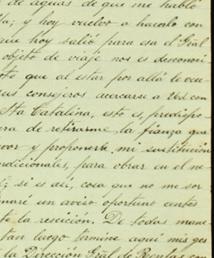 de aguas de que me hablo
ta; y hoy vuelvo a hacerlo con
que hoy salió para esa el Gral
objeto de viaje nos es desconoci
to que al estar por allá le vea
us consejeros acercarse a Ud. con
Sta Catalina, esto es, predispo
ra de retirarme la fianza que
vor y proponerle mi sustitución
adicionales, para obrar en el ne
; si es así, cosa que no me sor
un aviso oportuno antes
te la rescición. De todas mane
tan luego termine aquí mis ges
la Dirección Gral de Rentas con